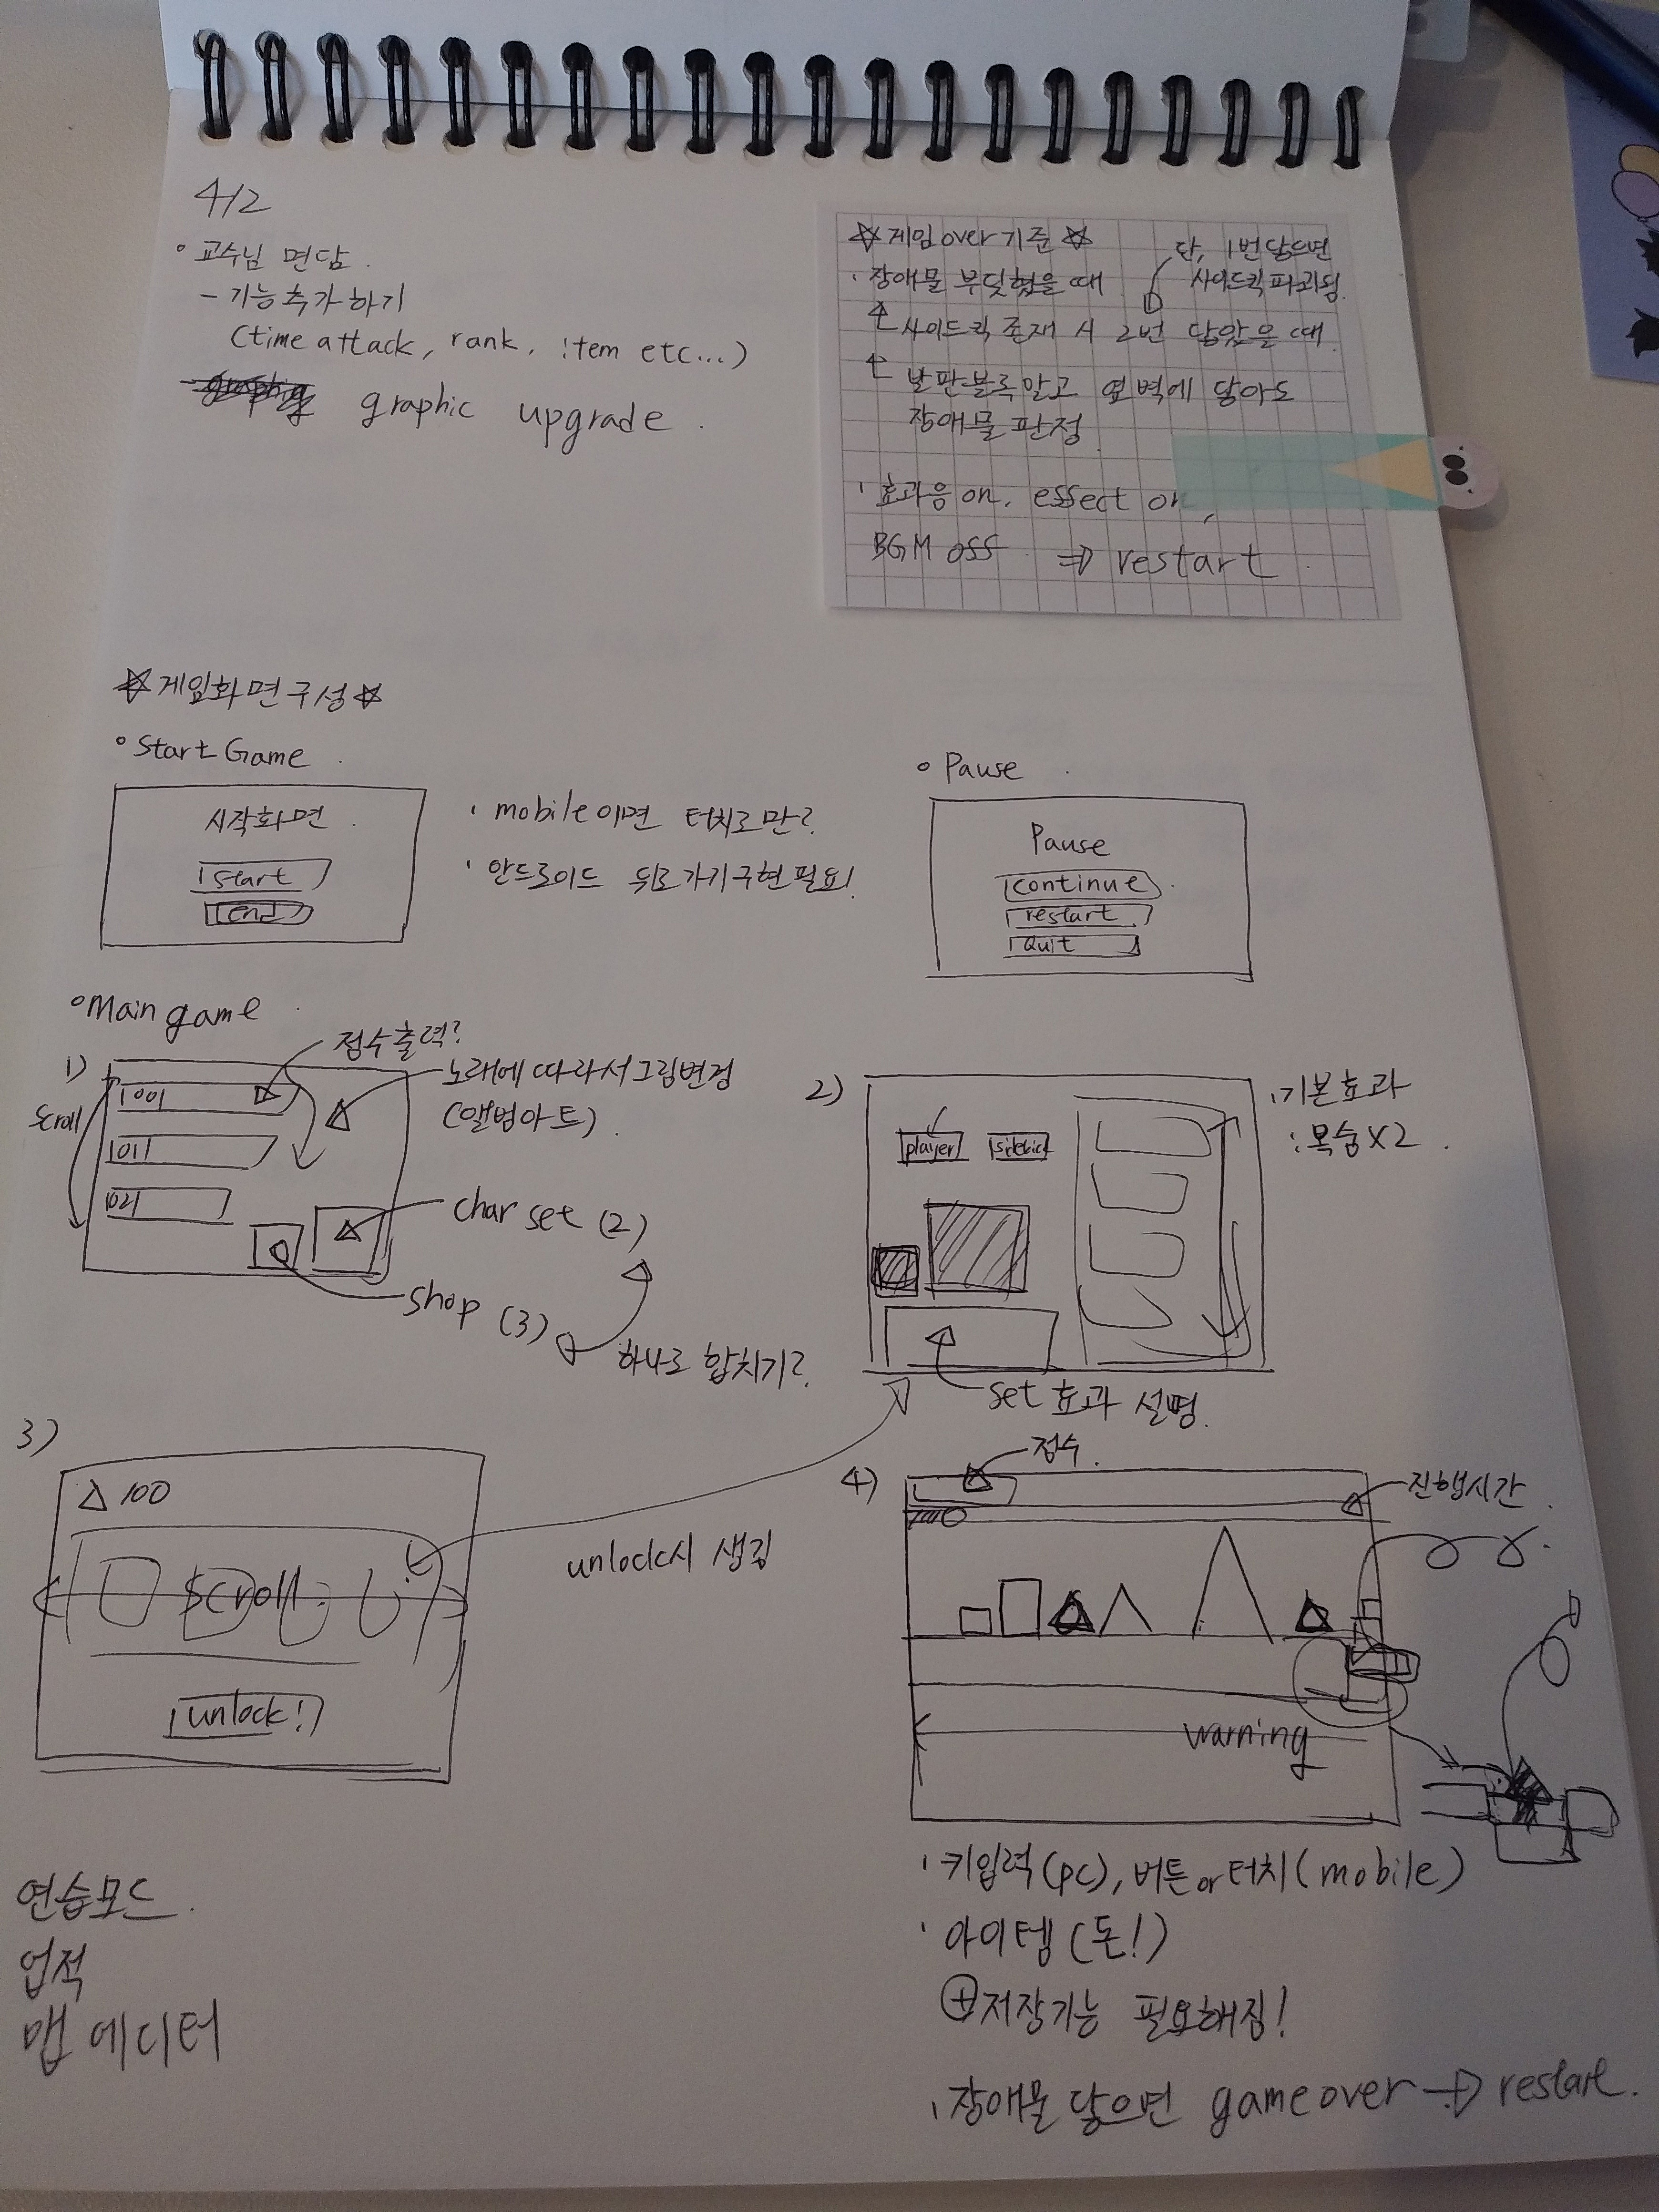 4/2
◦ 교수님 면담.
- 기능 추가하기
(time attack, rank, item etc...)
graphic upgrade.
☆게임over기준☆
· 장애물 부딪혔을 때
단, 1번 닿으면
사이드킥 파괴됨.
사이드킥 존재 시 2번 닿았을 때.
발판블록말고 옆 벽에 닿아도
장애물 판정.
· 효과음 on, effect on,
BGM off ⇒ restart.
☆게임화면구성☆
◦ Start Game.
시작화면.
start
end
· mobile이면 터치로만?
· 안드로이드 뒤로가기구현필요!
◦ Pause.
Pause
continue
restart
Quit
◦ Main game.
1)
scroll
점수출력?
노래에 따라서 그림변경
(앨범아트).
char set (2)
shop (3)
하나로 합치기?
2)
player
sidekick
· 기본효과
: 목숨X2.
set 효과 설명.
3)
△ 100
scroll
unlock!
unlock시 생김
4)
점수.
진행시간.
warning
· 키입력(pc), 버튼or터치(mobile)
· 아이템(돈!)
⊕저장기능 필요해짐!
· 장애물 닿으면 gameover → restart.
연습모드.
업적
맵 에디터